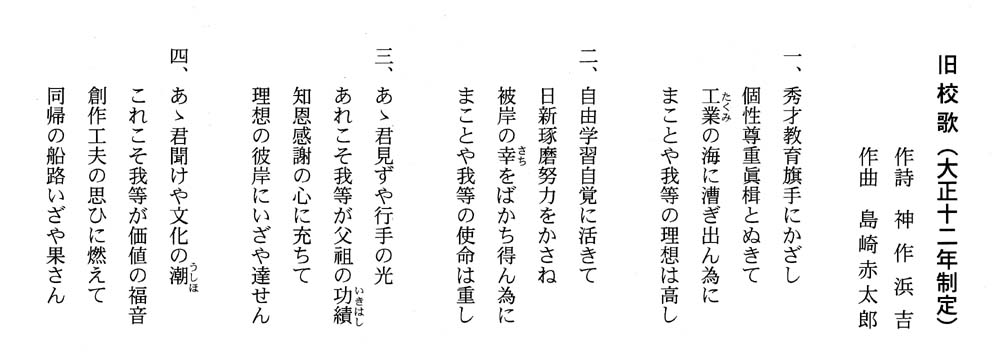 旧校歌（大正十二年制定）
作詩　神作浜吉
作曲　島崎赤太郎
一、秀才教育旗手にかざし
個性尊重眞楫とぬきて
工業の海に漕ぎ出ん為に
まことや我等の理想は高し
二、自由学習自覚に活きて
日新琢磨努力をかさね
被岸の幸をばかち得ん為に
まことや我等の使命は重し
三、あゝ君見ずや行手の光
あれこそ我等が父祖の功績
知恩感謝の心に充ちて
理想の彼岸にいざや達せん
四、あゝ君聞けや文化の潮
これこそ我等が価値の福音
創作工夫の思ひに燃えて
同帰の船路いざや果さん
たくみ
さち
いさはし
うしほ